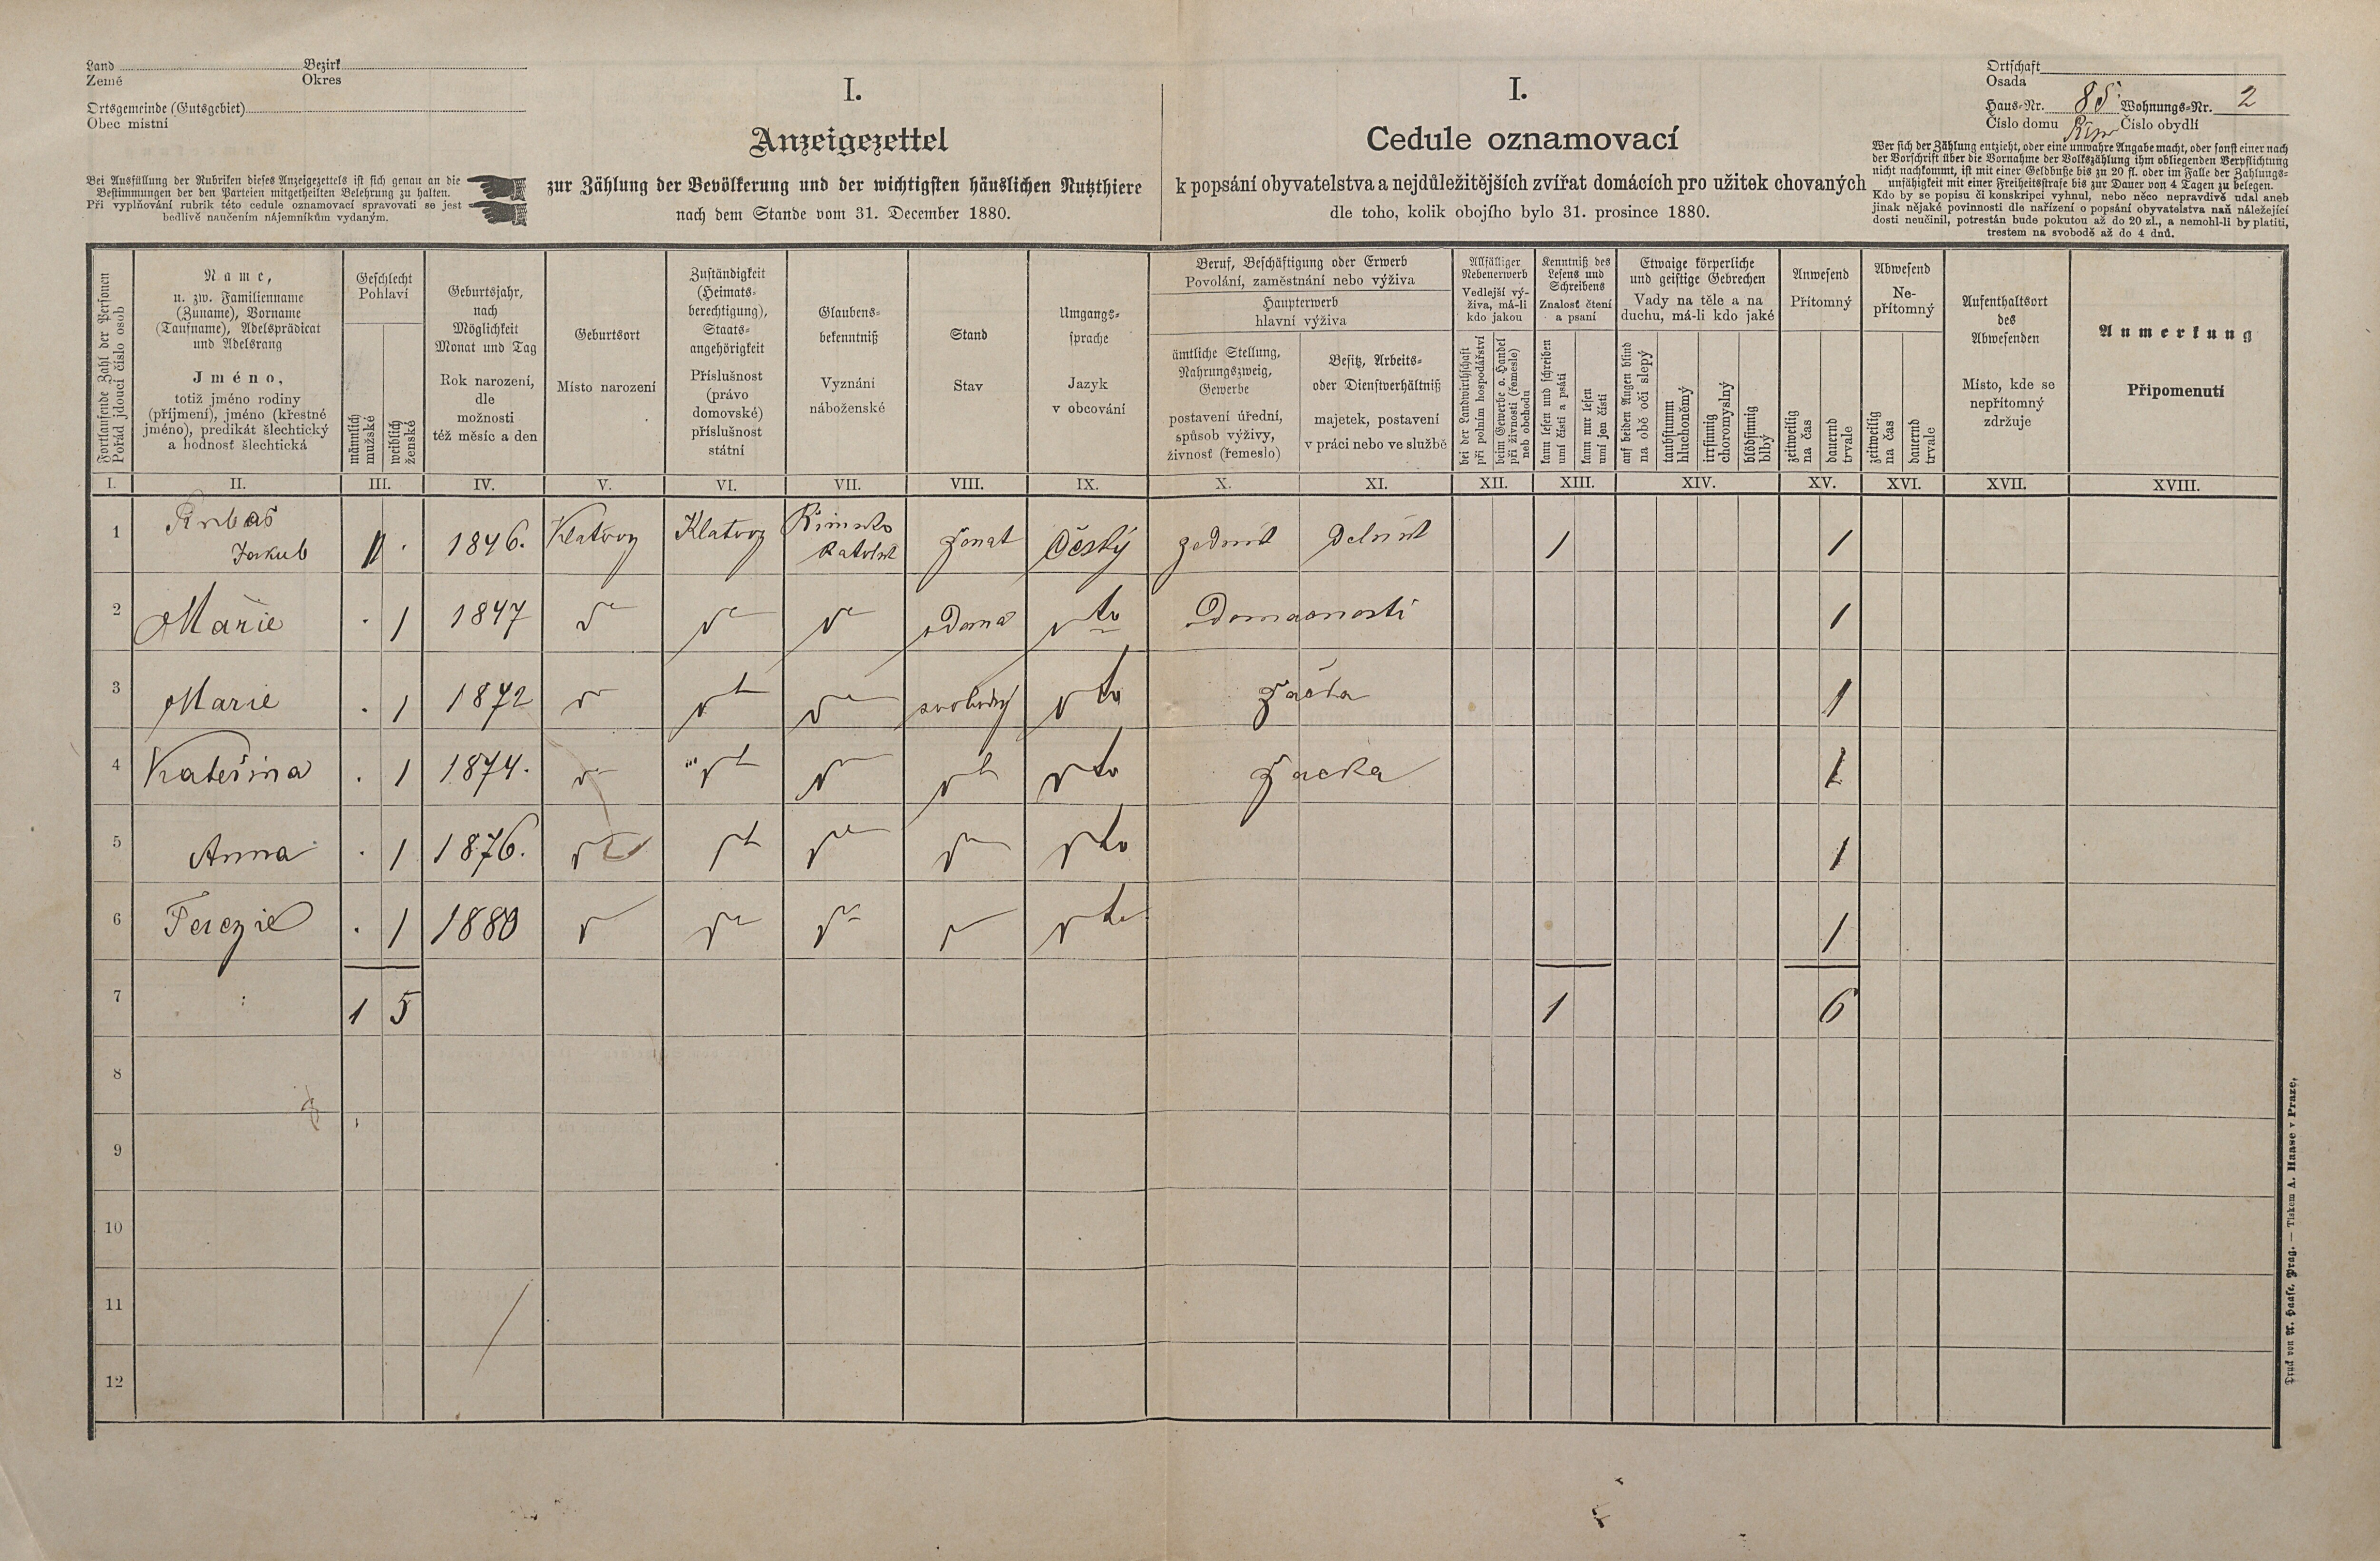 Land Bezirk
Země Okres
Ortsgemeinde (Gutsgebiet)
Obec místní
Bei Ausfüllung der Rubriken dieses Anzeigezettels ist sich genau an die
Bestimmungen der den Parteien mitgetheilten Belehrung zu halten.
Při vyplňování rubrik této cedule oznamovací spravovati se jest
bedlivě naučením nájemníkům vydaným.
I.
Anzeigezettel
zur Zählung der Bevölkerung und der wichtigsten häuslichen Nutzthiere
nach dem Stande vom 31. December 1880.
I.
Cedule oznamovací
k popsání obyvatelstva a nejdůležitějších zvířat domácích pro užitek chovaných
dle toho, kolik obojího bylo 31. prosince 1880.
Ortschaft
Osada
Haus-Nr. 85 Wohnungs-Nr. 2
Číslo domu Číslo obydlí
Wer sich der Zählung entzieht, oder eine unwahre Angabe macht, oder sonst einer nach
der Vorschrift über die Vornahme der Volkszählung ihm obliegenden Verpflichtung
nicht nachkommt, ist mit einer Geldbuße bis zu 20 fl. oder im Falle der Zahlungs-
unfähigkeit mit einer Freiheitsstrafe bis zur Dauer von 4 Tagen zu belegen.
Kdo by se popisu či konskripci vyhnul, nebo něco nepravdivě udal aneb
jinak nějaké povinnosti dle nařízení o popsání obyvatelstva naň náležející
dosti neučinil, potrestán bude pokutou až do 20 zl., a nemohl-li by platiti,
trestem na svobodě až do 4 dnů.
Fortlaufende Zahl der Personen
Pořád jdoucí číslo osob
Name,
u. zw. Familienname
(Zuname), Vorname
(Taufname), Adelsprädicat
und Adelsrang
Jméno,
totiž jméno rodiny
(příjmení), jméno (křestné
jméno), predikát šlechtický
a hodnosť šlechtická
Geschlecht
Pohlaví
männlich
mužské
weiblich
ženské
Geburtsjahr,
nach
Möglichkeit
Monat und Tag
Rok narození,
dle
možnosti
též měsíc a den
Geburtsort
Místo narození
Zuständigkeit
(Heimats-
berechtigung),
Staats-
angehörigkeit
Příslušnost
(právo
domovské)
příslušnost
státní
Glaubens-
bekenntniß
Vyznání
náboženské
Stand
Stav
Umgangs-
sprache
Jazyk
v obcování
Beruf, Beschäftigung oder Erwerb
Povolání, zaměstnání nebo výživa
Haupterwerb
hlavní výživa
ämtliche Stellung,
Nahrungszweig,
Gewerbe
postavení úřední,
spůsob výživy,
živnosť (řemeslo)
Besitz, Arbeits-
oder Dienstverhältniß
majetek, postavení
v práci nebo ve službě
Allfälliger
Nebenerwerb
Vedlejší vý-
živa, má-li
kdo jakou
bei der Landwirthschaft
při polním hospodářství
beim Gewerbe o. Handel
při živnosti (řemesle)
neb obchodu
Kenntniß des
Lesens und
Schreibens
Znalosť čtení
a psaní
kann lesen und schreiben
umí čísti a psáti
kann nur lesen
umí jen čísti
Etwaige körperliche
und geistige Gebrechen
Vady na těle a na
duchu, má-li kdo jaké
auf beiden Augen blind
na obě oči slepý
taubstumm
hluchoněmý
irrsinnig
choromyslný
blödsinnig
blbý
Anwesend
Přítomný
zeitweilig
na čas
dauernd
trvale
Abwesend
Ne-
přítomný
zeitweilig
na čas
dauernd
trvale
Aufenthaltsort
des
Abwesenden
Místo, kde se
nepřítomný
zdržuje
Anmerkung
Připomenutí
I. II. III. IV. V. VI. VII. VIII. IX. X. XI. XII. XIII. XIV. XV. XVI. XVII. XVIII.
1 Jakub 1 . 1846. Klatovy Klatovy Římsko Katolik ženat Český zednik Delnik 1 1
2 Mařie . 1 1847 vdana dto Domacnosti 1
3 Marie . 1 1872 svobodný dto žačka 1
4 Kateřina . 1 1874. dto žacka 1
5 Anna . 1 1876. dto 1
6 Terezie . 1 1880 dto 1
7 1 5 1 6
8
9
10
11
12
Druck von A. Haase, Prag. — Tiskem A. Haase v Praze,